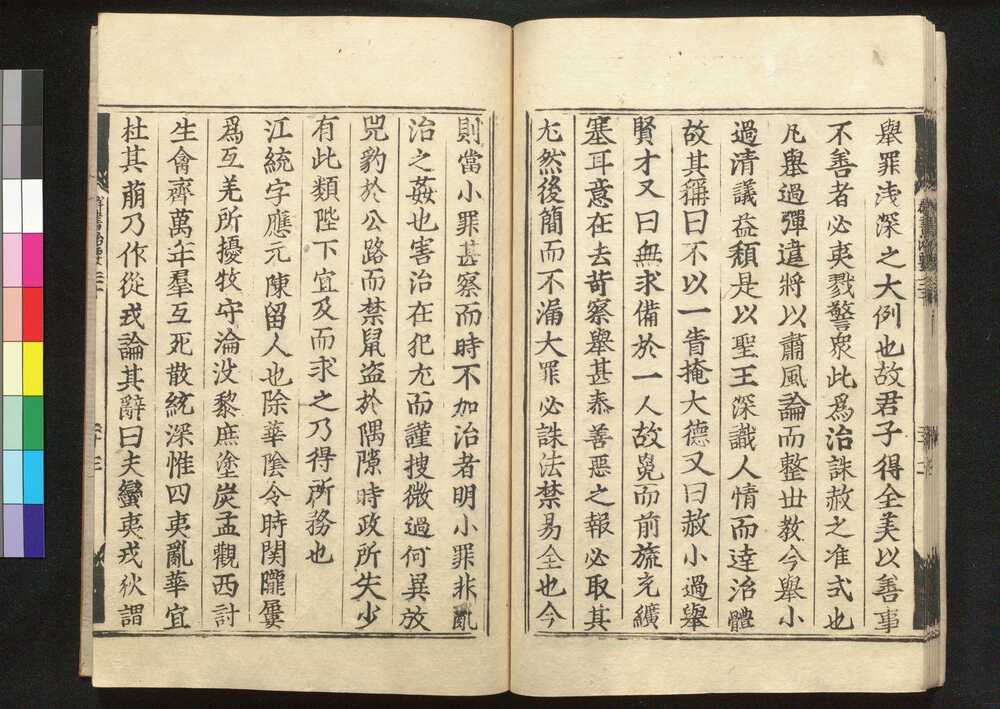 舉罪浅深之大例也故君子得全美以善事
不善者必夷戮警衆此爲治誅赦之准式也
凡舉過彈違將以肅風論而整世教今舉小
過清議益頽是以聖王深識人情而達治體
故其稱曰不以一眚掩大德又曰赦小過舉
賢才又曰無求備於一人故冕而前旒充纊
塞耳意在去苛察舉甚泰善惡之報必取其
尤然後簡而不漏大罪必誅法禁易全也今
則當小罪甚察而時不加治者明小罪非亂
治之姦也害治在犯尤而謹搜微過何異放
兕豹於公路而禁鼠盗於隅隙時政所失少
有此類陛下宜反而求之乃得所務也
江統字應元陳留人也除華陰令時関隴屢
爲互羌所擾牧守淪没黎庶塗炭孟觀西討
生禽齊萬年羣互死散統深惟四夷亂華宜
杜其萠乃作從戎論其辭曰夫蠻夷戎狄謂